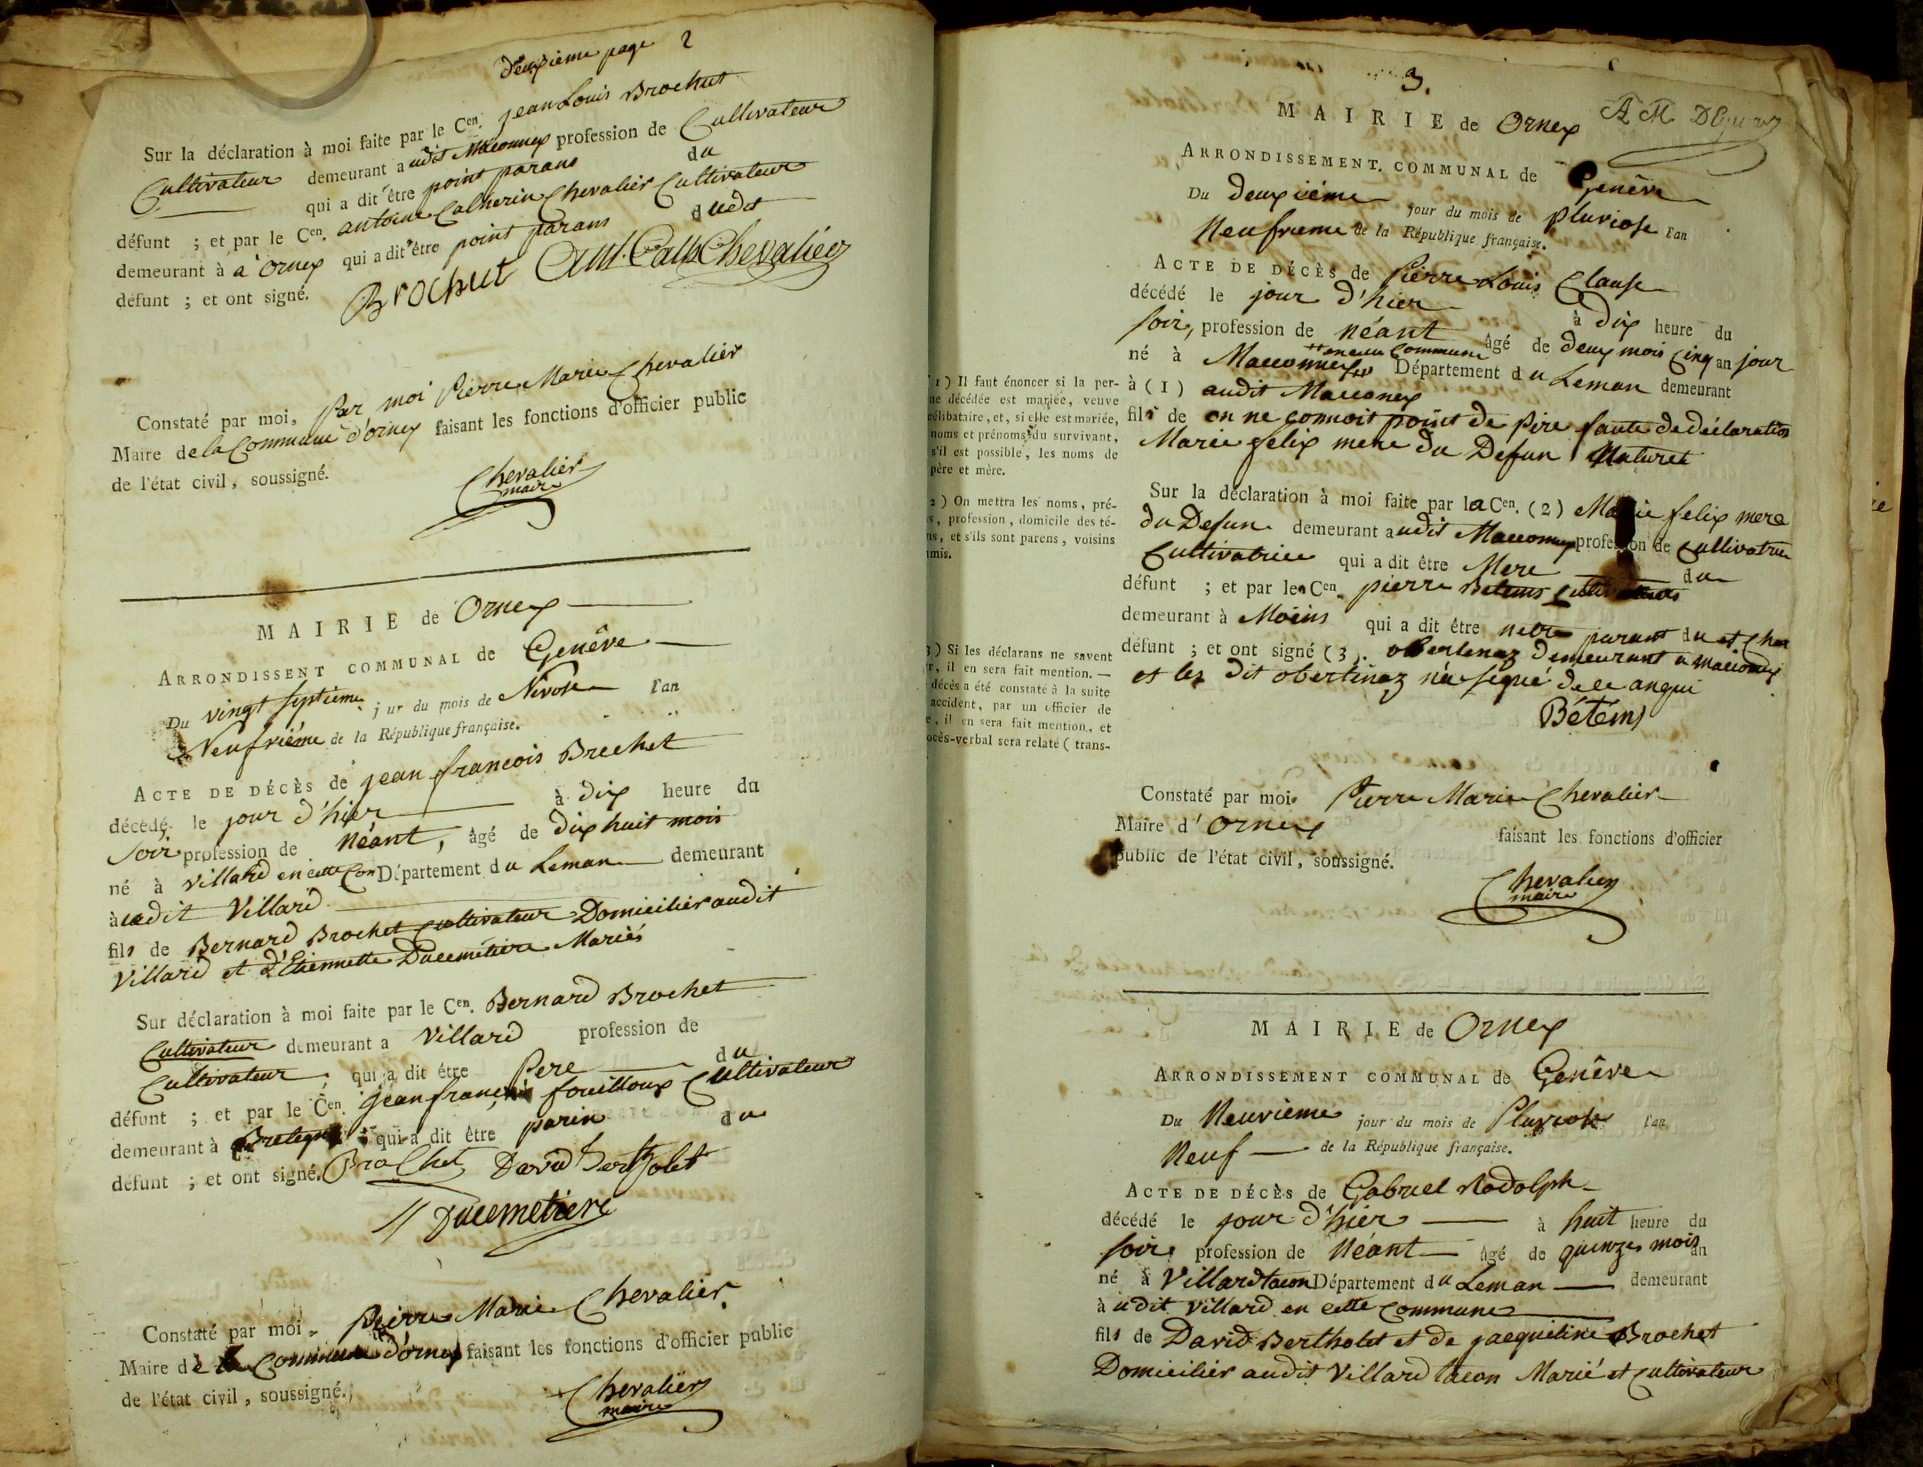 deuxieme page 2
Sur la déclaration à moi faite par le Cen. jean Louis Brochut
Cultivateur demeurant audit Maconnex profession de Cultivateur
qui a dit être point parans du
défunt ; et par le Cen. antoine Catherin Chevalier Cultivateur
demeurant à a Ornex qui a dit être point parans dudit
défunt ; et ont signé. Brochut Ant. Cath Chevaliéer
Constaté par moi, Par moi Pierre Marie Chevalier
Maire de la Commune d'ornex faisant les fonctions d'officier public
de l'état civil, soussigné.
Chevalier
maire
MAIRIE de Ornex
ARRONDISSENT COMMUNAL de Genêve
Du vingt septieme jour du mois de Nivose l'an
Neufvieme de la République française.
ACTE DE DÉCÈS de jean francois Brochet
décédé le jour d'hier à dix heure du
soir profession de Néant, âgé de dix huit mois
né à Villard en cette Con Département du Leman demeurant
à udit Villard
fils de Bernard Brochet Cultivateur Domicilier audit
Villard et d'Etiennette Ducemétière Mariés
Sur déclaration à moi faite par le Cen. Bernard Brochet
Cultivateur demeurant a Villard profession de
Cultivateur, qui a dit être Pere du
défunt ; et par le Cen. jean francois fouilloux Cultivateur
demeurant à Bretegny qui a dit être parin du
défunt ; et ont signé. BroChet David bertholet
Ducemetiere
Constaté par moi Pierre Marie Chevalier
Maire de la Commune d'ornex faisant les fonctions d'officier public
de l'état civil, soussigné.
Chevalier
maire
3.
MAIRIE de Ornex
ARRONDISSEMENT COMMUNAL de Genêve
Du deuxiéme jour du mois de pluviose l'an
Neufvieme de la République française.
ACTE DE DÉCÈS de Pierre Louis Clause
décédé le jour d'hier à dix heure du
soir, profession de néant âgé de deux mois cinq an jour
né à Maconnex en cette Commune Département du Leman demeurant
à (1) audit Maconex
fils de on ne connoit point de pere faute de déclaration
Marie felix mere du Defun Naturet
Sur la déclaration à moi faite par la Cen. (2) Marie felix mere
du Defun demeurant audit Maconnex profession de Cultivatrice
Cultivatrice qui a dit être Mere du
défunt ; et par le Cen pierre Betems
demeurant à Moëns qui a dit être parant du et
défunt ; et ont signé (3). obertinaz demeurant a maconnex
et les dit obertinaz n'a signé de ce
Bétems
(1) Il faut énoncer si la per-
ne décédée est mariée, veuve
célibataire, et, si elle est mariée,
noms et prénoms du survivant,
s'il est possible, les noms de
père et mère.
2) On mettra les noms, pré-
s, profession, domicile des té-
ns, et s'ils sont parens, voisins
amis.
3) Si les déclarans ne savent
r, il en sera fait mention. —
décès a été constaté à la suite
accident, par un officier de
e, il en sera fait mention, et
ocès-verbal sera relaté ( trans-
Constaté par moi Pierre Marie Chevalier
Maire d'Ornex faisant les fonctions d'officier
public de l'état civil, soussigné.
Chevalier
maire
MAIRIE de Ornex
ARRONDISSEMENT COMMUNAL de Genêve
Du Neuvieme jour du mois de Pluviose l'an
Neuf de la République française.
ACTE DE DÉCÈS de Gabriel Rodolph
décédé le jour d'hier à huit heure du
soir profession de Néant âgé de quinze mois an
né à Villardtacon Département du Leman demeurant
à udit Villard en cette Commune
fils de David Bertholet et de jacqueline Brochet
Domicilier audit Villard tacon Marié et Cultivateur